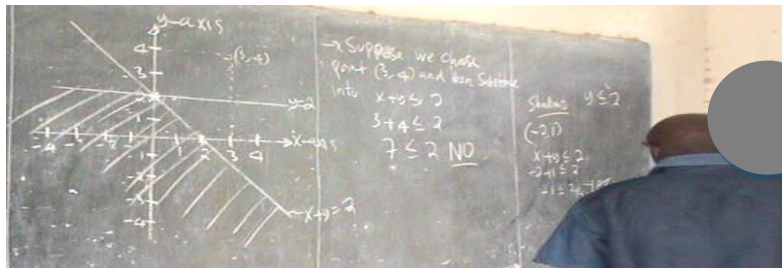 y-axis
4
3
(3,4)
y=2
1
x-axis
-4 -3 -2 -1 1 2 3 4
-1
-2
-3
-4
x+y=2
→ Suppose we chose
point (3,4) and then Substute
Into x+y≤2
3+4≤2
7≤2 NO
Shading y≤2
(-2,1)
x+y≤2
-2+1≤2
-1≤2